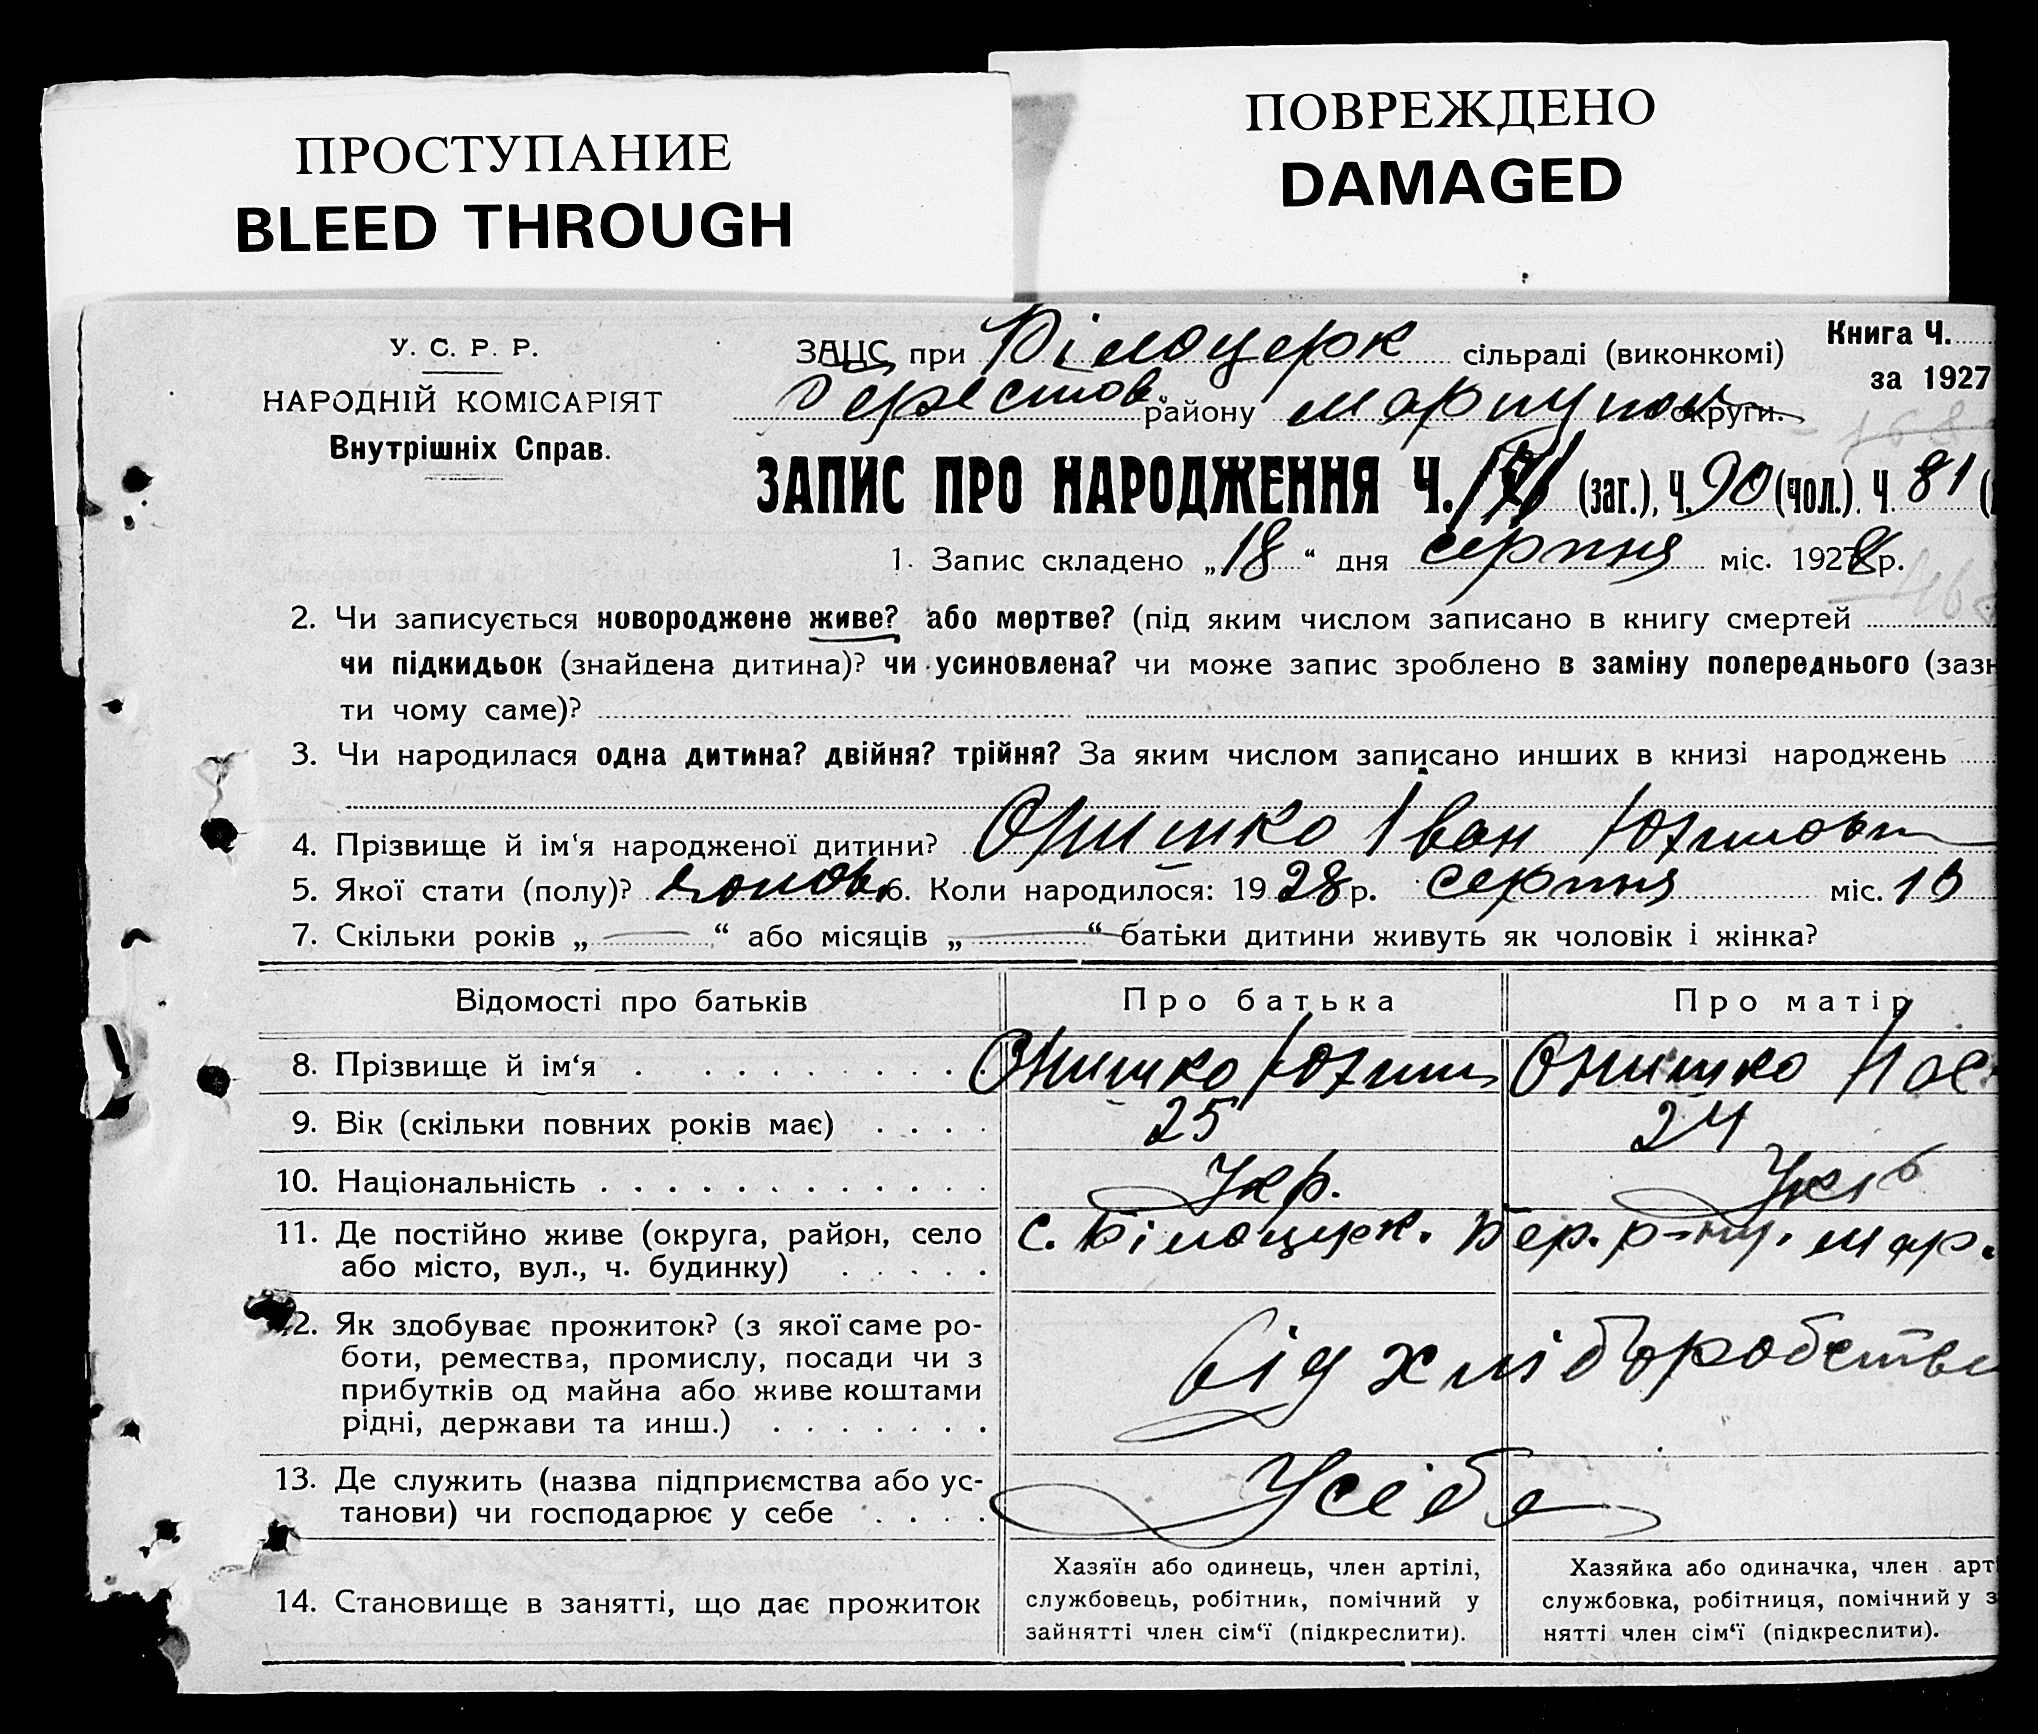 ПРОСТУПАНИЕ
BLEED THROUGH
ПОВРЕЖДЕНО
DAMAGED
У. С. Р. Р.
НАРОДНІЙ КОМІСАРІЯТ
Внутрішніх Справ.
ЗАЦС при Білоцерк сільраді (виконкомі)
Берестов. району Маріупол округи.
Книга Ч.
за 1927
ЗАПИС ПРО НАРОДЖЕННЯ Ч. 171 (заг.), Ч. 90 (чол.). Ч. 81 (
1. Запис складено „18“ дня серпня міс. 1928 р.
2. Чи записується новороджене живе? або мертве? (під яким числом записано в книгу смертей
чи підкидьок (знайдена дитина)? чи усиновлена? чи може запис зроблено в заміну попереднього (зазн
ти чому саме)?
3. Чи народилася одна дитина? двійня? трійня? За яким числом записано инших в книзі народжень
4. Прізвище й ім‘я народженої дитини? Онишко Іван Юхимов
5. Якої стати (полу)? чолов. 6. Коли народилося: 1928 р. серпня міс. 15
7. Скільки років „ — “ або місяців „ — “ батьки дитини живуть як чоловік і жінка?
Відомості про батьків Про батька Про матір
8. Прізвище й ім‘я . Онишко Юхим Онишко Нас
9. Вік (скільки повних років має) 25 24
10. Національність Укр. Укр
11. Де постійно живе (округа, район, село с. Білоцерк. Бер. р-ну. Мар.
або місто, вул., ч. будинку)
12. Як здобуває прожиток? (з якої саме ро-
боти, ремества, промислу, посади чи з від хліборобства
прибутків од майна або живе коштами
рідні, держави та инш.)
13. Де служить (назва підприємства або ус- У себе
танови) чи господарює у себе
14. Становище в занятті, що дає прожиток
Хазяїн або одинець, член артілі,
службовець, робітник, помічний у
зайнятті член сім‘ї (підкреслити).
Хазяйка або одиначка, член арт
службовка, робітниця, помічний у з
нятті член сім‘ї (підкреслити).